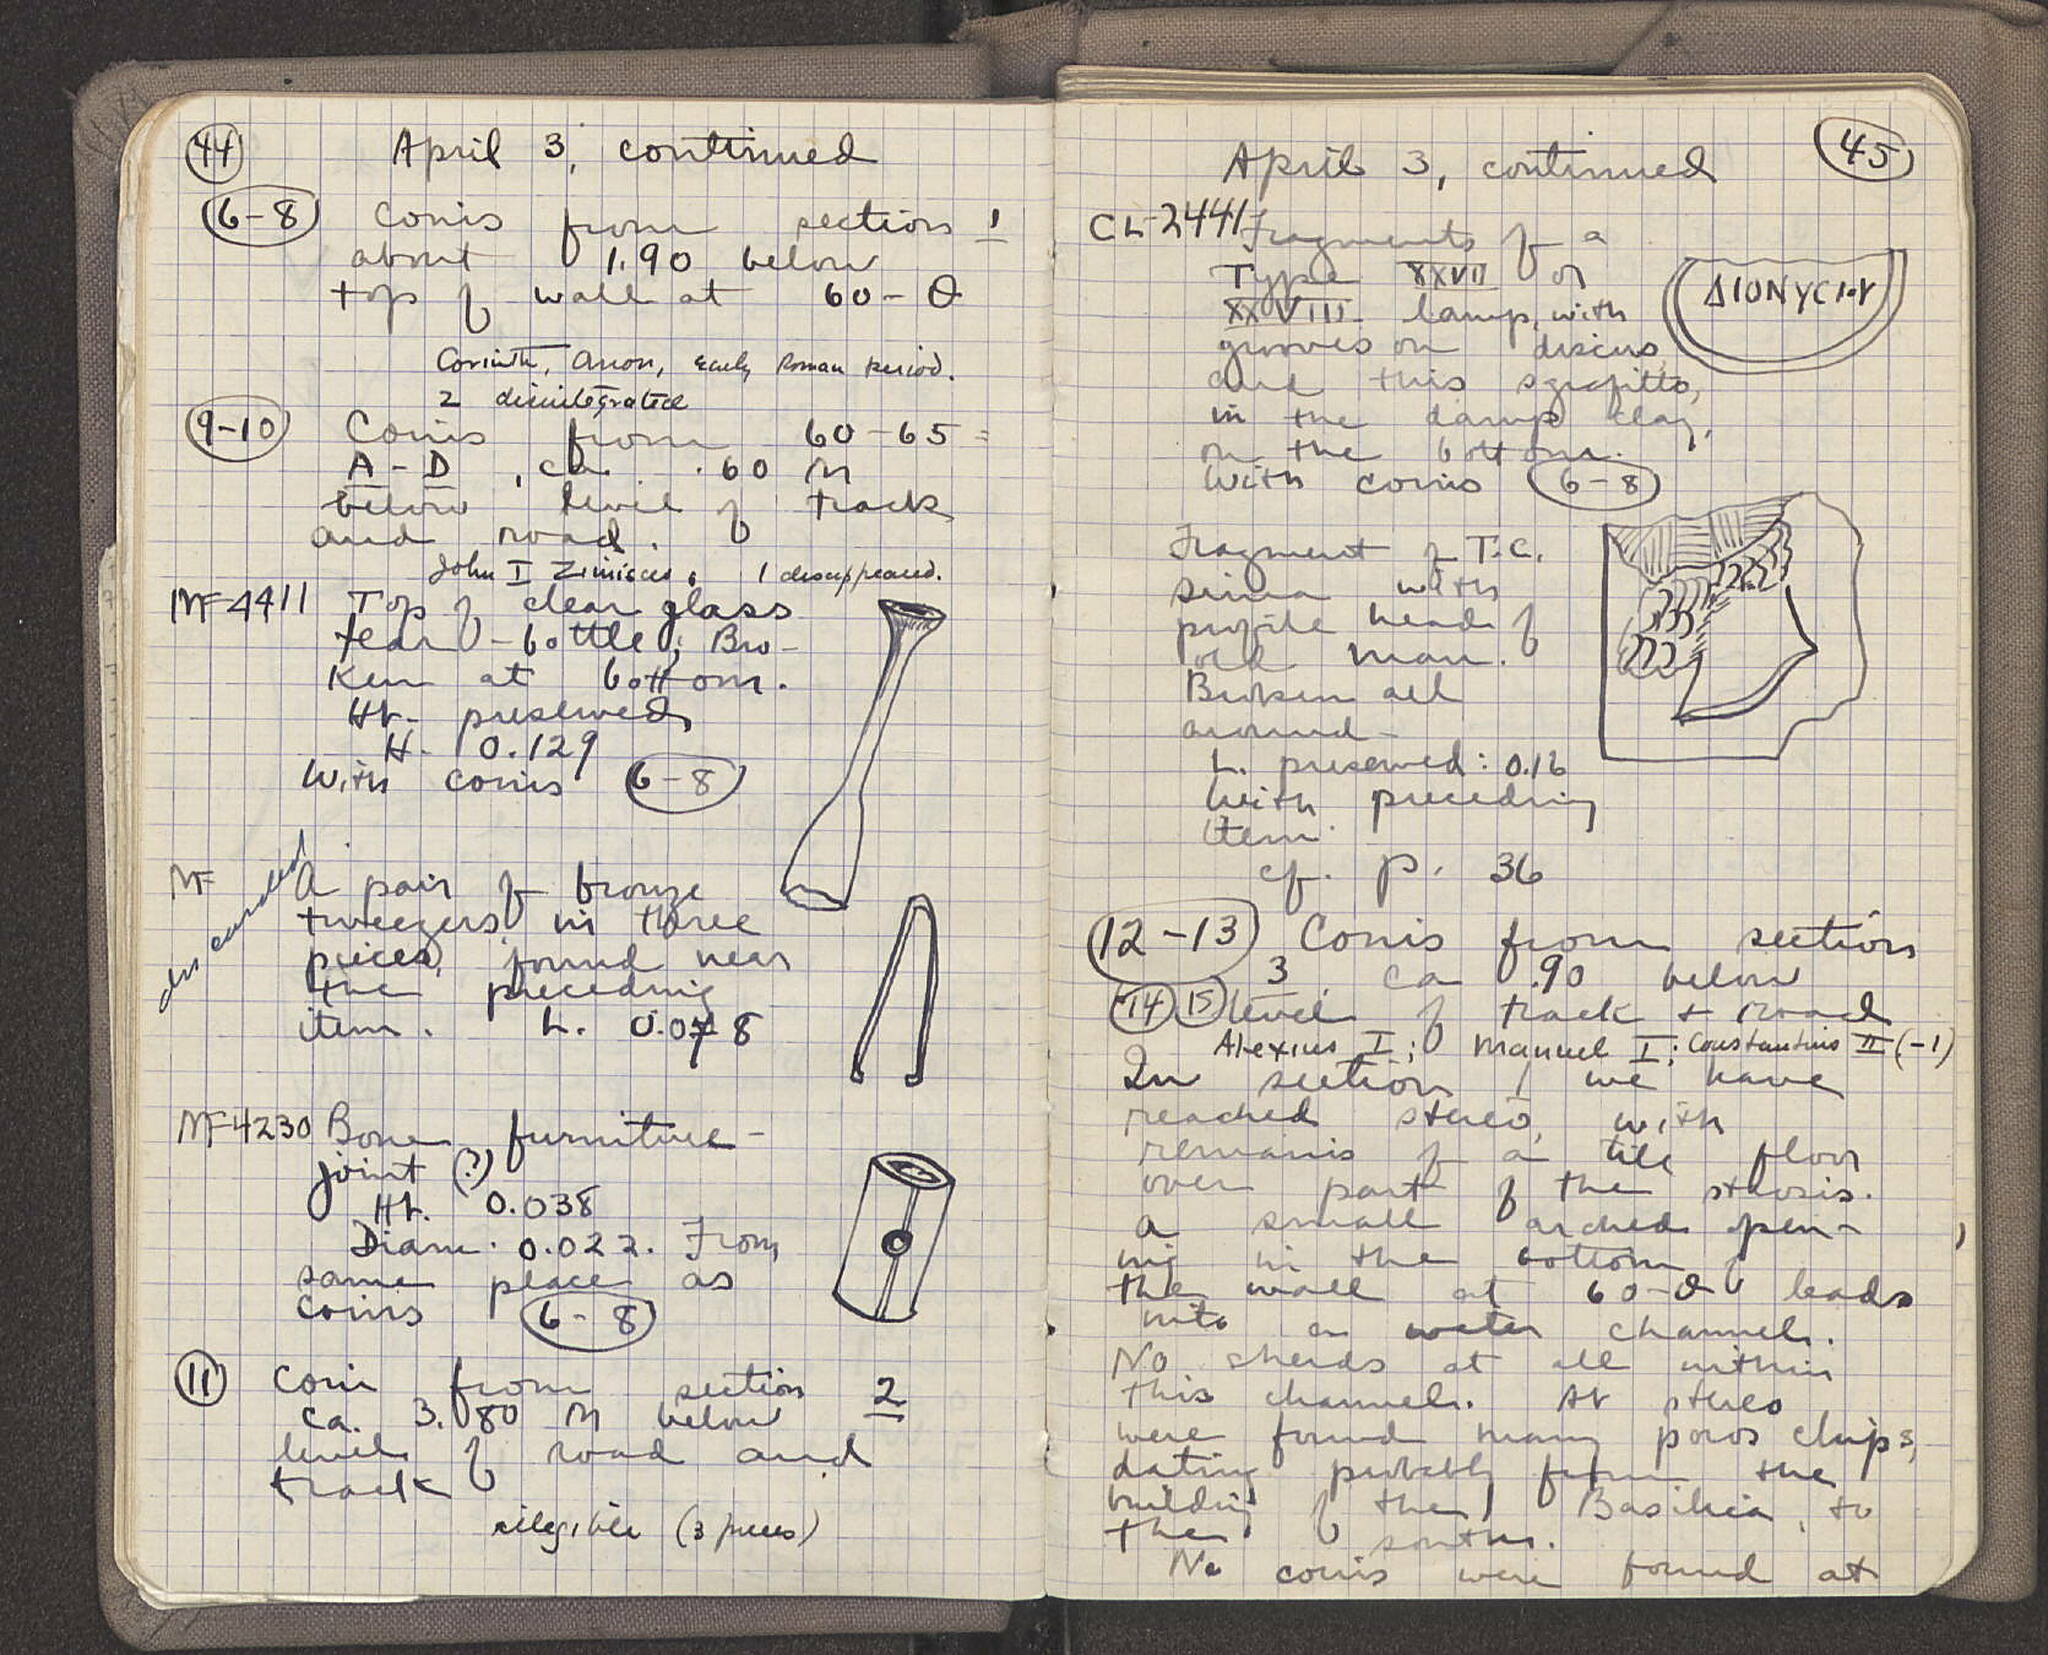 44
April 3, continued
6-8 Coins from section 1
about 1.90 below
top of wall at 60-θ
Corinth, Anon, early Roman period.
2 disintegrated
9-10 Coins from 60-65 =
A-D, ca .60 M
below level of track
and road.
John I Zimisces, 1 disappeared.
MF-4411 Top of clear glass
tear-bottle; Bro-
ken at bottom.
Ht. preserved
H. 0.129
With coins 6-8
MF A pair of bronze
discarded
tweezers in three
pieces, found near
the preceding
item. L. 0.078
MF4230 Bone furniture-
joint (?)
Ht. 0.038
Diam. 0.022. From
same place as
coins 6-8
11 Coin from section 2
ca. 3.80 M below
level of road and
track
illegible (3 pieces)
45
April 3, continued
CL-2441 Fragments of a
Type XXVII or
XXVIII lamp, with
grooves on discus,
and this sgrafitto,
in the damp clay,
on the bottom.
With coins 6-8
ΔΙΟΝΥCΙΟΥ
Fragment of T.C.
sima with
profile head of
old man.
Broken all
around-
L. preserved: 0.16
With preceding
item.
cf. p. 36
12-13 Coins from section
3, ca .90 below
14 15 level of track + road
Alexius I; Manuel I; Constantius II (-1)
In section 1 we have
reached stereo, with
remains of a tile floor
over part of the stereo.
A small arched open-
ing in the bottom of
the wall at 60-θ leads
into a water channel.
No sherds at all within
this channel. At stereo
were found many poros chips,
dating probably from the
building of the Basilica, to
the south.
No coins were found at